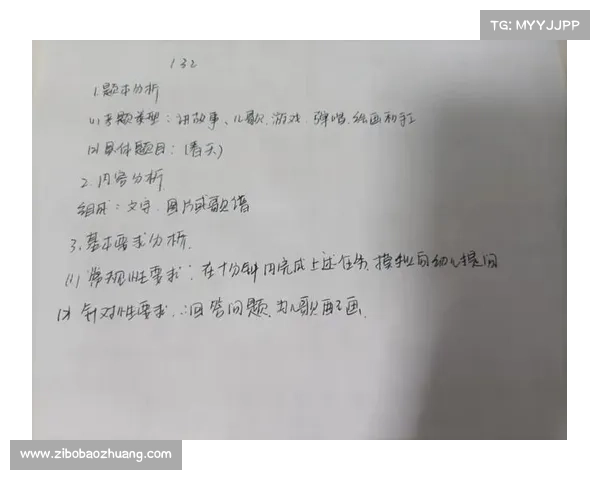 TG: MYYJJPP
132
1.题本分析
(1)考题类型：讲故事、儿歌、游戏、弹唱、绘画和手工
(2)具体题目：《春天》
2.内容分析
组成：文字、图片或歌谱
3.基本要求分析.
(1)常规性要求：在十分钟内完成上述任务,模拟向幼儿提问
(2)针对性要求：回答问题,为儿歌配画.
www.zibobaozhuang.com